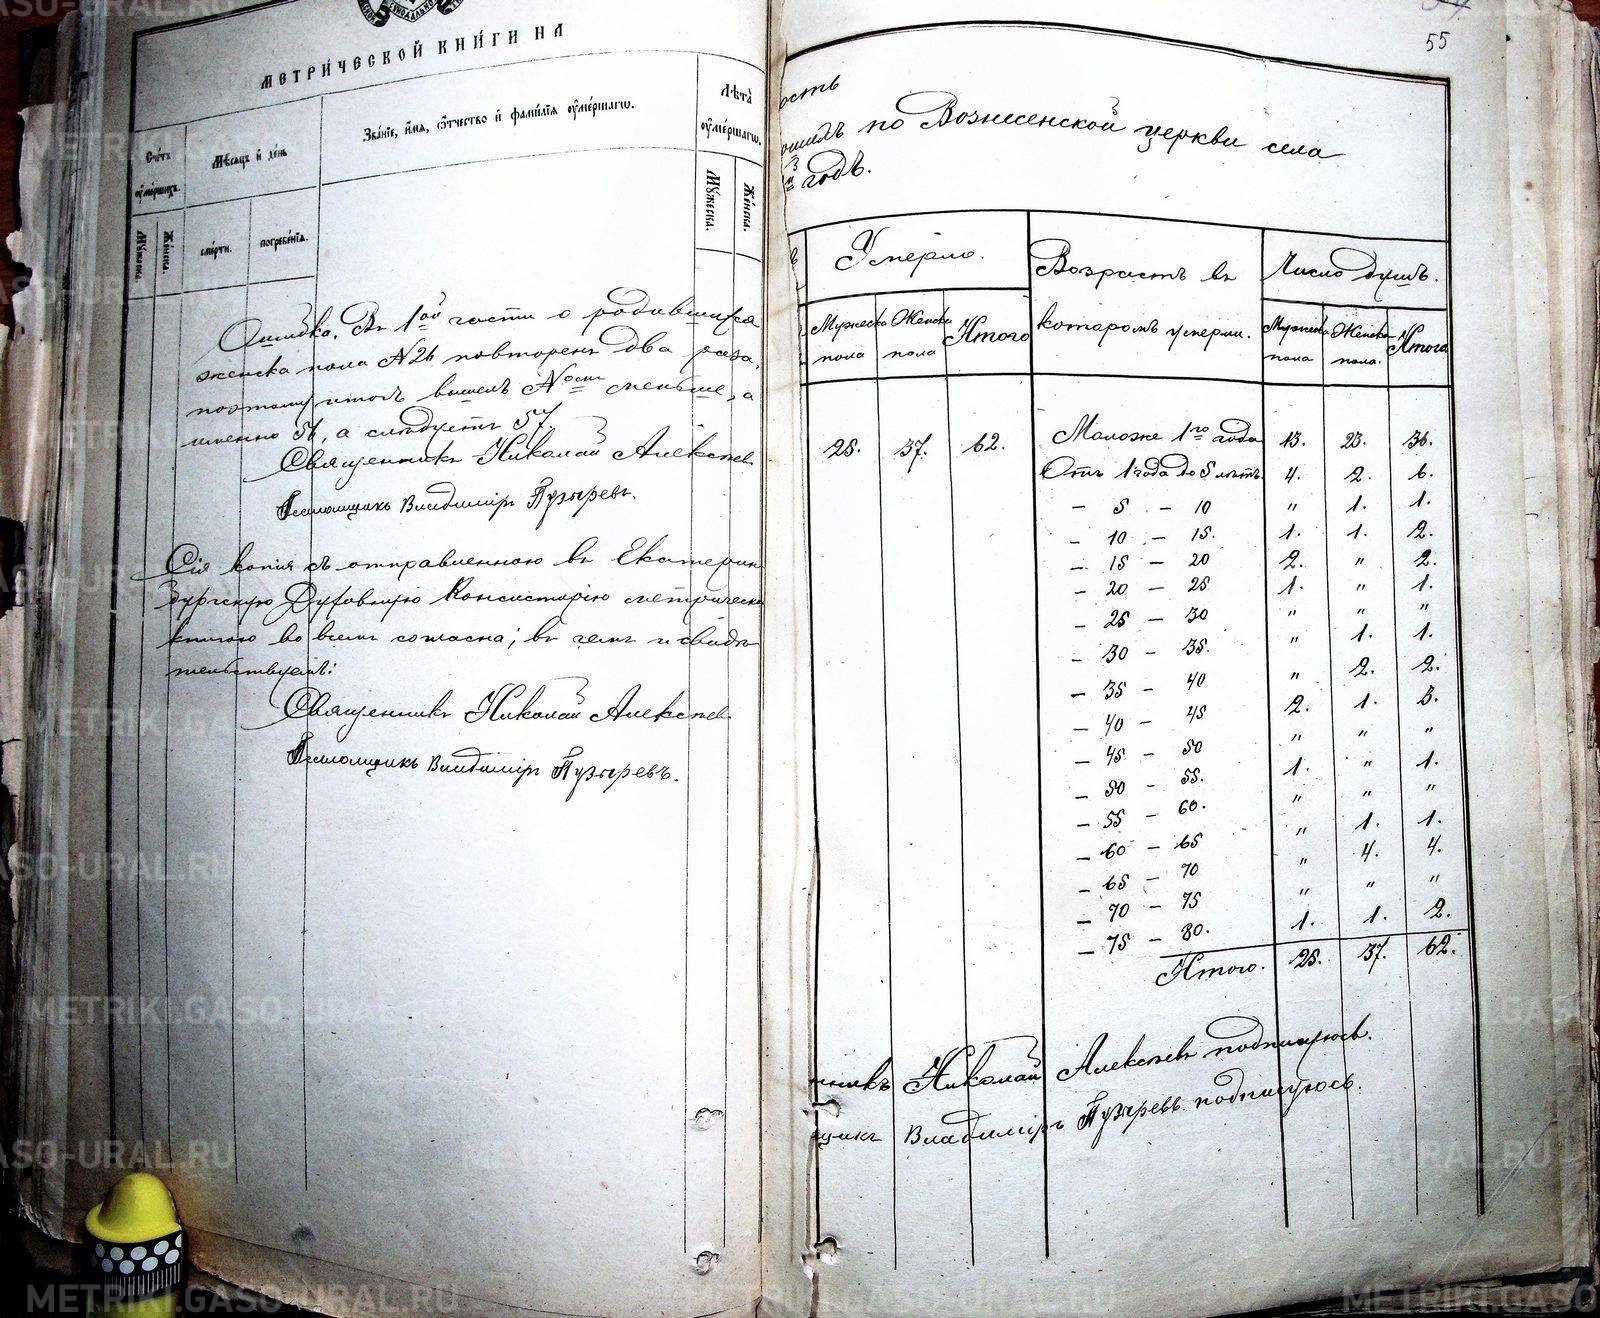 МЕТРИ́ЧЕСКОЙ КНИ́ГИ НА
Сче́тъ
оуме́ршихъ.
Мѣсяцъ и де́нь
Зва́нїе, и́мя, о́тчество и фами́лїя оуме́ршагѡ.
Лѣта̀
оуме́ршагѡ.
Му́жеска.
Же́нска.
сме́рти.
погребе́нїя.
Му́жеска.
Же́нска.
Ошибка. Въ 1ой части о родившихся
женска пола №26 повторенъ два раза,
поэтому итогъ вышелъ №омъ меньше, а
именно 56, а слѣдуетъ 57.
Священникъ Николай Алексѣев
Псаломщикъ Владимiръ Пузыревъ.
Сiя копiя съ отправленною въ Екатерин
бургскую Духовную Консисторiю метрическ
книгою во всемъ согласна; въ чемъ и свидѣ
тельствуемъ:
Священникъ Николай Алексѣев
Псаломщикъ Владимiръ Пузыревъ.
55
ость
ошихъ по Вознесенской церкви села
3
м годъ.
Умерло.
Возрастъ въ
которомъ умерли.
Число душъ.
Мужеска пола
Женска пола
Итого
Мужеска пола
Женска пола.
Итого
25. 37. 62. Моложе 1го года 13. 23. 36.
Отъ 1 года до 5 лѣтъ. 4. 2. 6.
— 5 — 10 " 1. 1.
— 10 — 15. 1. 1. 2.
— 15 — 20 2. " 2.
— 20 — 25 1. " 1.
— 25 — 30 " " "
— 30 — 35. " 1. 1.
— 35 — 40 " 2. 2.
— 40 — 45 2. 1. 3.
— 45 — 50 " " "
— 50 — 55. 1. " 1.
— 55 — 60. " " "
— 60 — 65 " 1. 1.
— 65 — 70 " 4. 4.
— 70 — 75 " " "
— 75 — 80. 1. 1. 2.
Итого. 25. 37. 62.
нникъ Николай Алексѣевъ подпишуюсь.
щикъ Владимiръ Пузыревъ. подпишуюсь.
METRIKI.GASO-URAL.RU